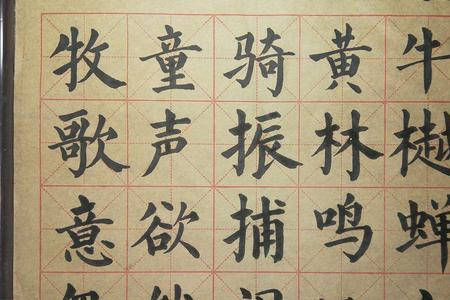 牧童骑黄牛
歌声振林樾
意欲捕鸣蝉